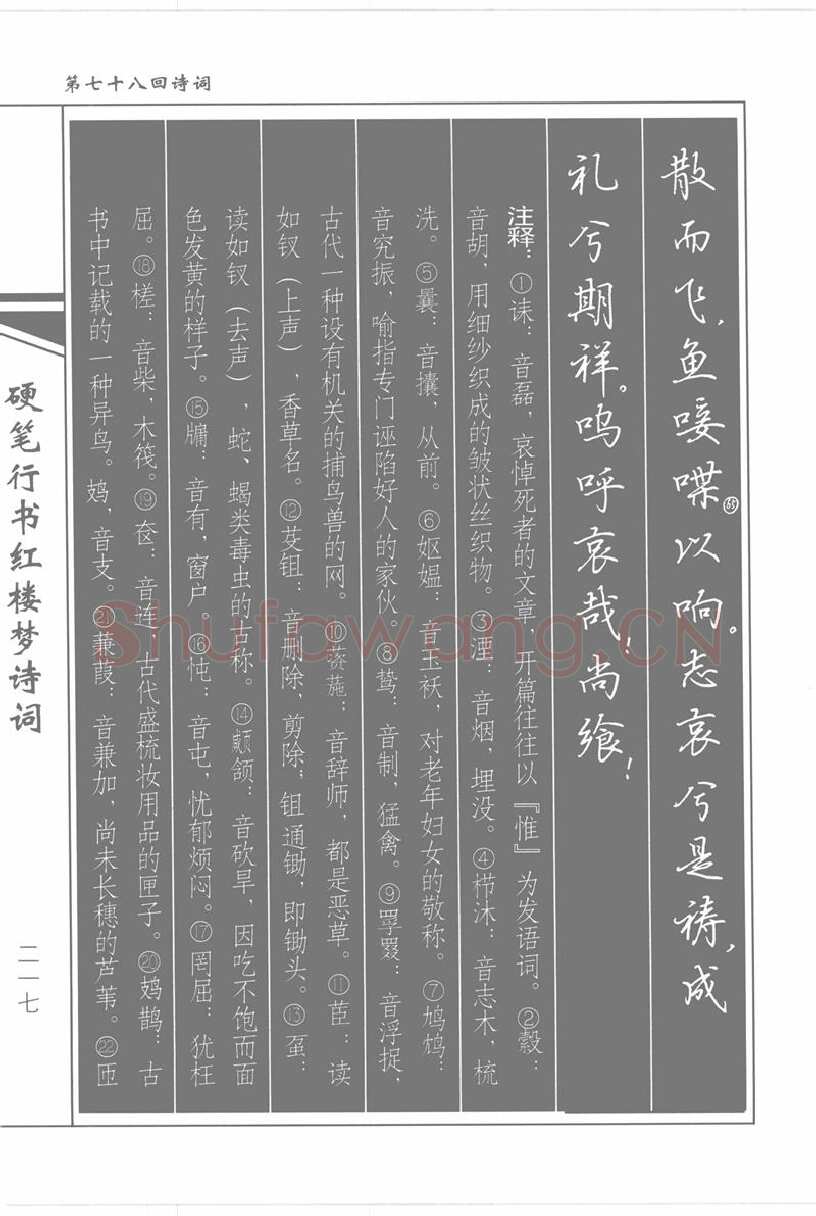 第七十八回诗词
散而飞，鱼唼喋㊿以响。志哀兮是祷，成
礼兮期祥。呜呼哀哉！尚飨！
注释：①诔：音磊，哀悼死者的文章，开篇往往以『惟』为发语词。②縠：
音胡，用细纱织成的皱状丝织物。③湮：音烟，埋没。④栉沐：音志木，梳
洗。⑤曩：音攮，从前。⑥妪媪：音玉袄，对老年妇女的敬称。⑦鸠鸩：
音究振，喻指专门诬陷好人的家伙。⑧鸷：音制，猛禽。⑨罦罬：音浮捉，
古代一种设有机关的捕鸟兽的网。⑩薋葹：音辞师，都是恶草。⑪茝：读
如钗（上声），香草名。⑫芟鉏：音删除，剪除；鉏通锄，即锄头。⑬虿：
读如钗（去声），蛇、蝎类毒虫的古称。⑭顑颔：音砍旱，因吃不饱而面
色发黄的样子。⑮牖：音有，窗户。⑯忳：音屯，忧郁烦闷。⑰罔屈：犹枉
屈。⑱槎：音柴，木筏。⑲奁：音连，古代盛梳妆用品的匣子。⑳鳷鹊：古
书中记载的一种异鸟。鳷，音支。㉑蒹葭：音兼加，尚未长穗的芦苇。㉒匝
硬笔行书红楼梦诗词
二一七
Shufawang.CN